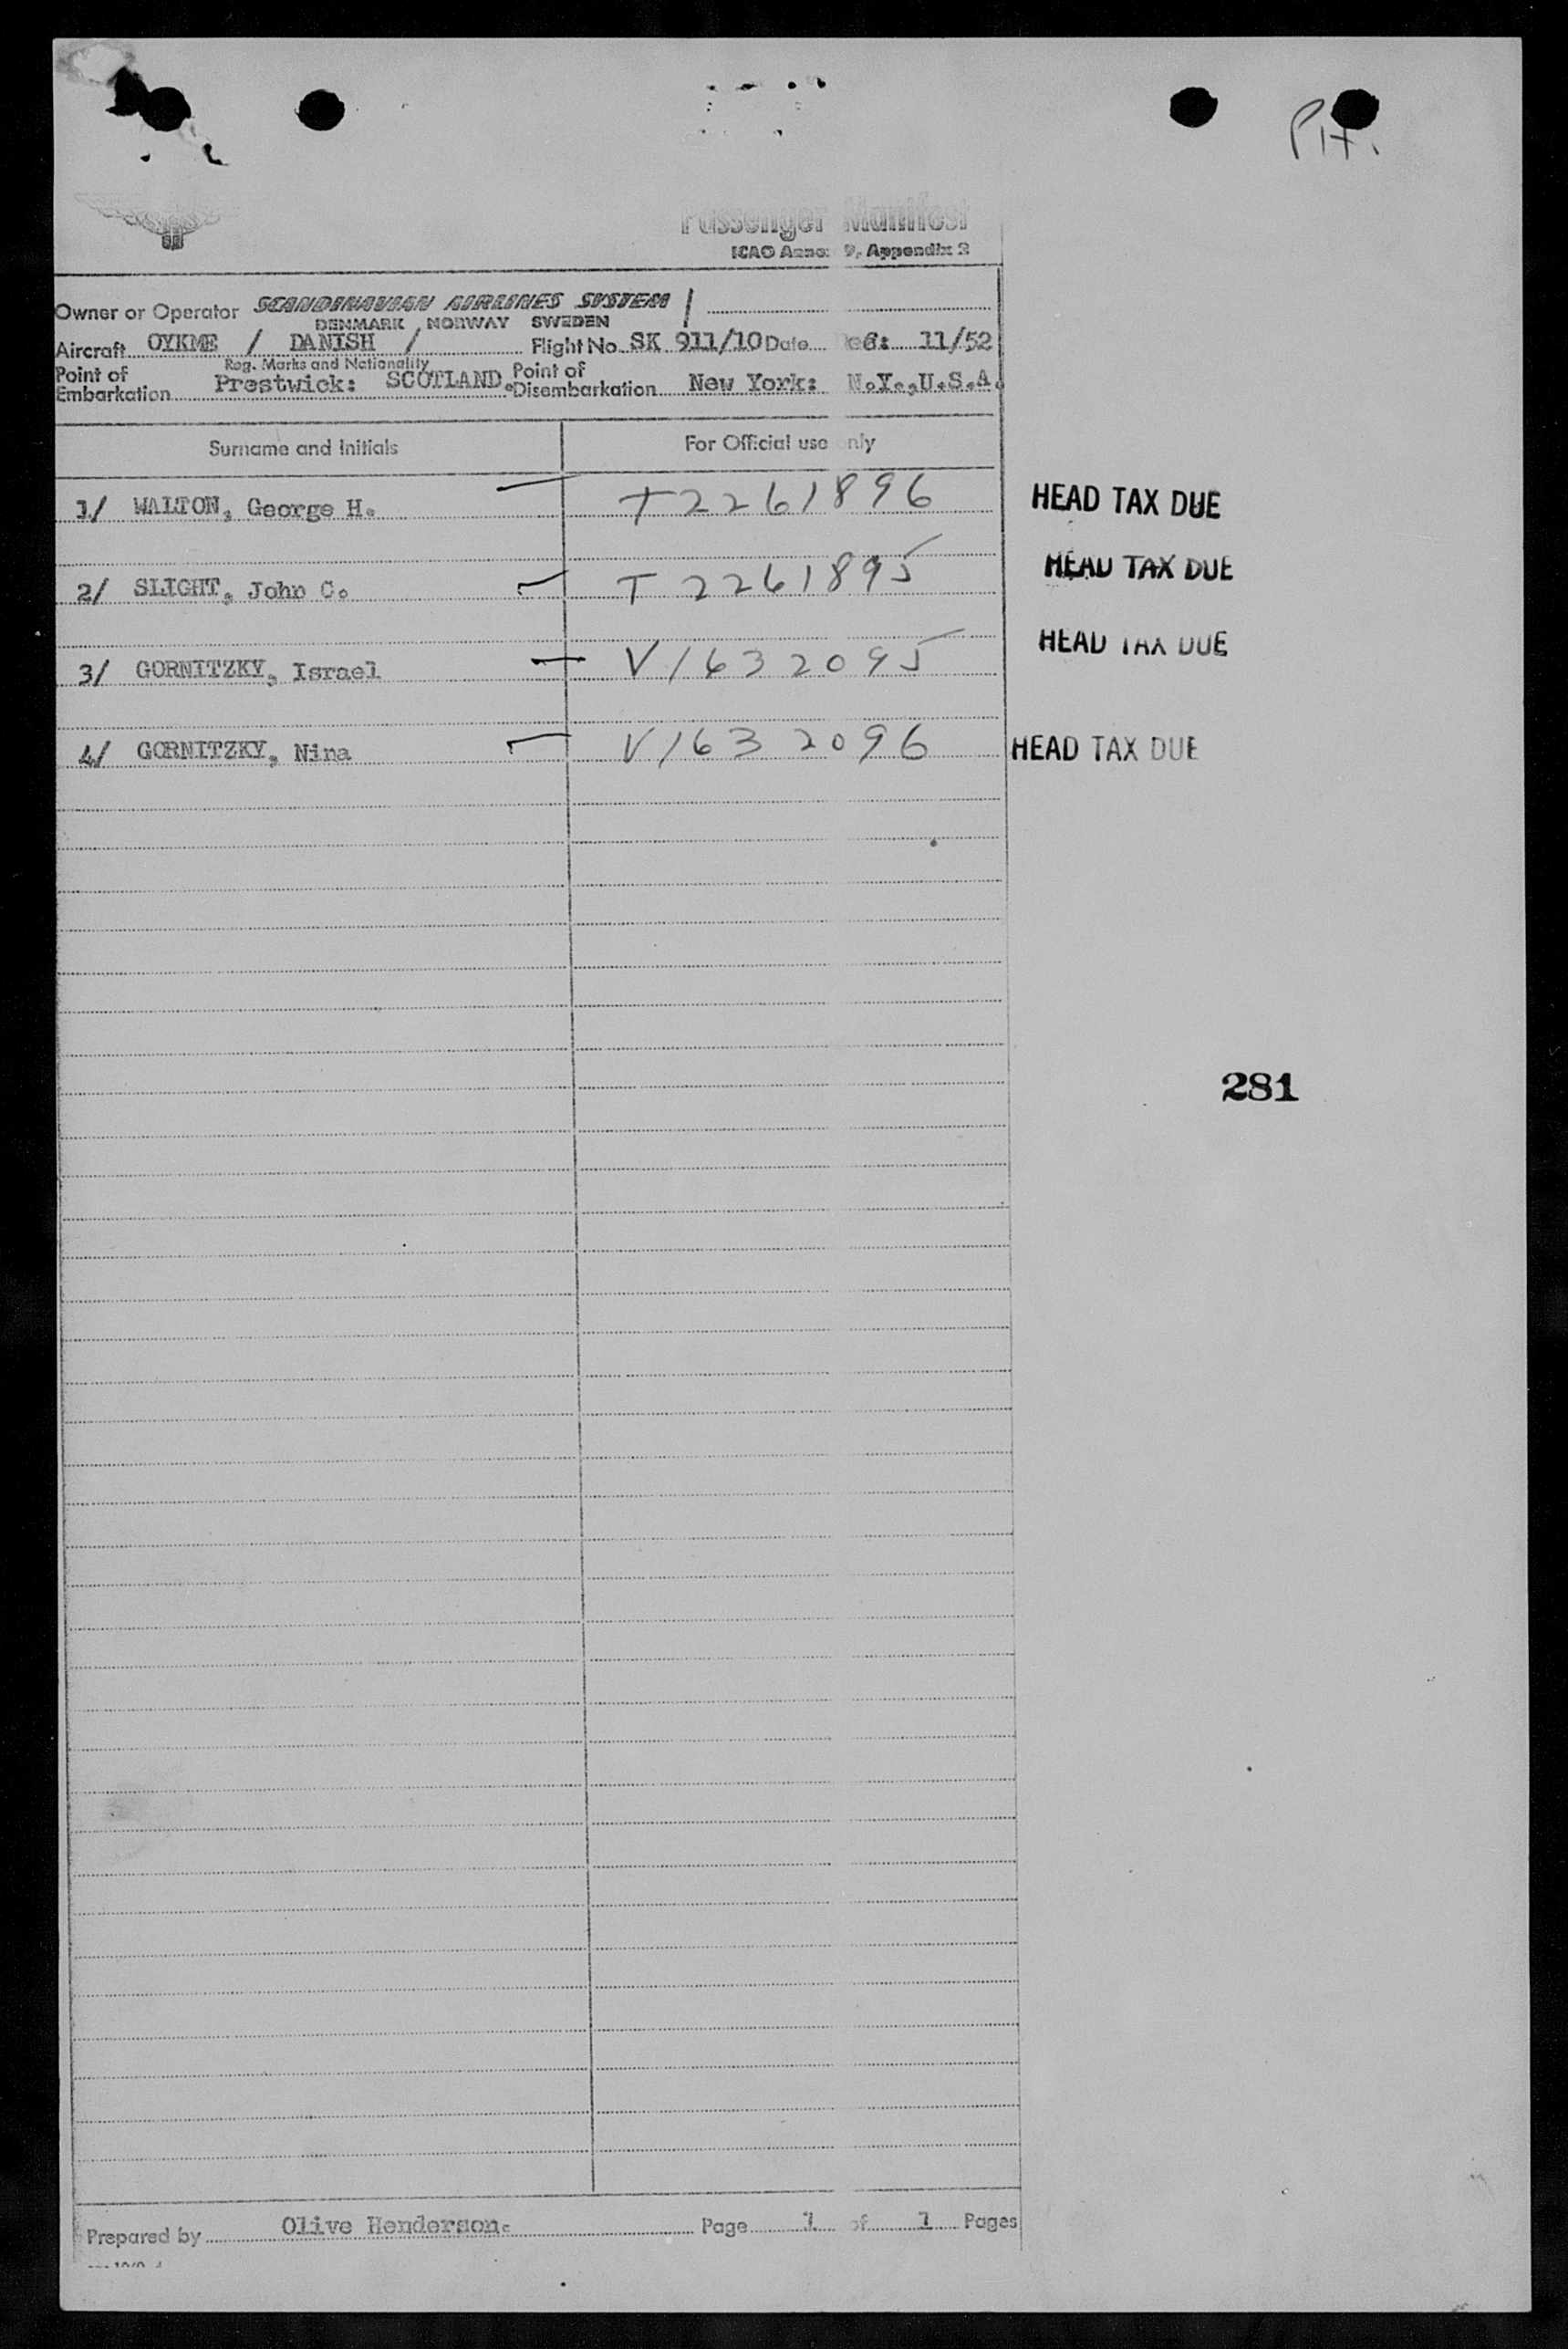 PH.
Passenger Manifest
ICAO Annex 9, Appendix 2
Owner or Operator SCANDINAVIAN AIRLINES SYSTEM
DENMARK NORWAY SWEDEN
Aircraft OYKME / DANISH / Flight No. SK 911/10 Date 6: 11/52
Reg. Marks and Nationality
Point of Embarkation Prestwick: SCOTLAND. Point of Disembarkation New York: N.Y.,U.S.A.
Surname and Initials For Official use only
1/ WALTON, George H. T2261896 HEAD TAX DUE
2/ SLIGHT, John C. T 2261895 HEAD TAX DUE
3/ GORNITZKY, Israel V1632095 HEAD TAX DUE
4/ GORNITZKY, Nina V1632096 HEAD TAX DUE
281
Prepared by Olive Henderson. Page 1 of 1 Pages